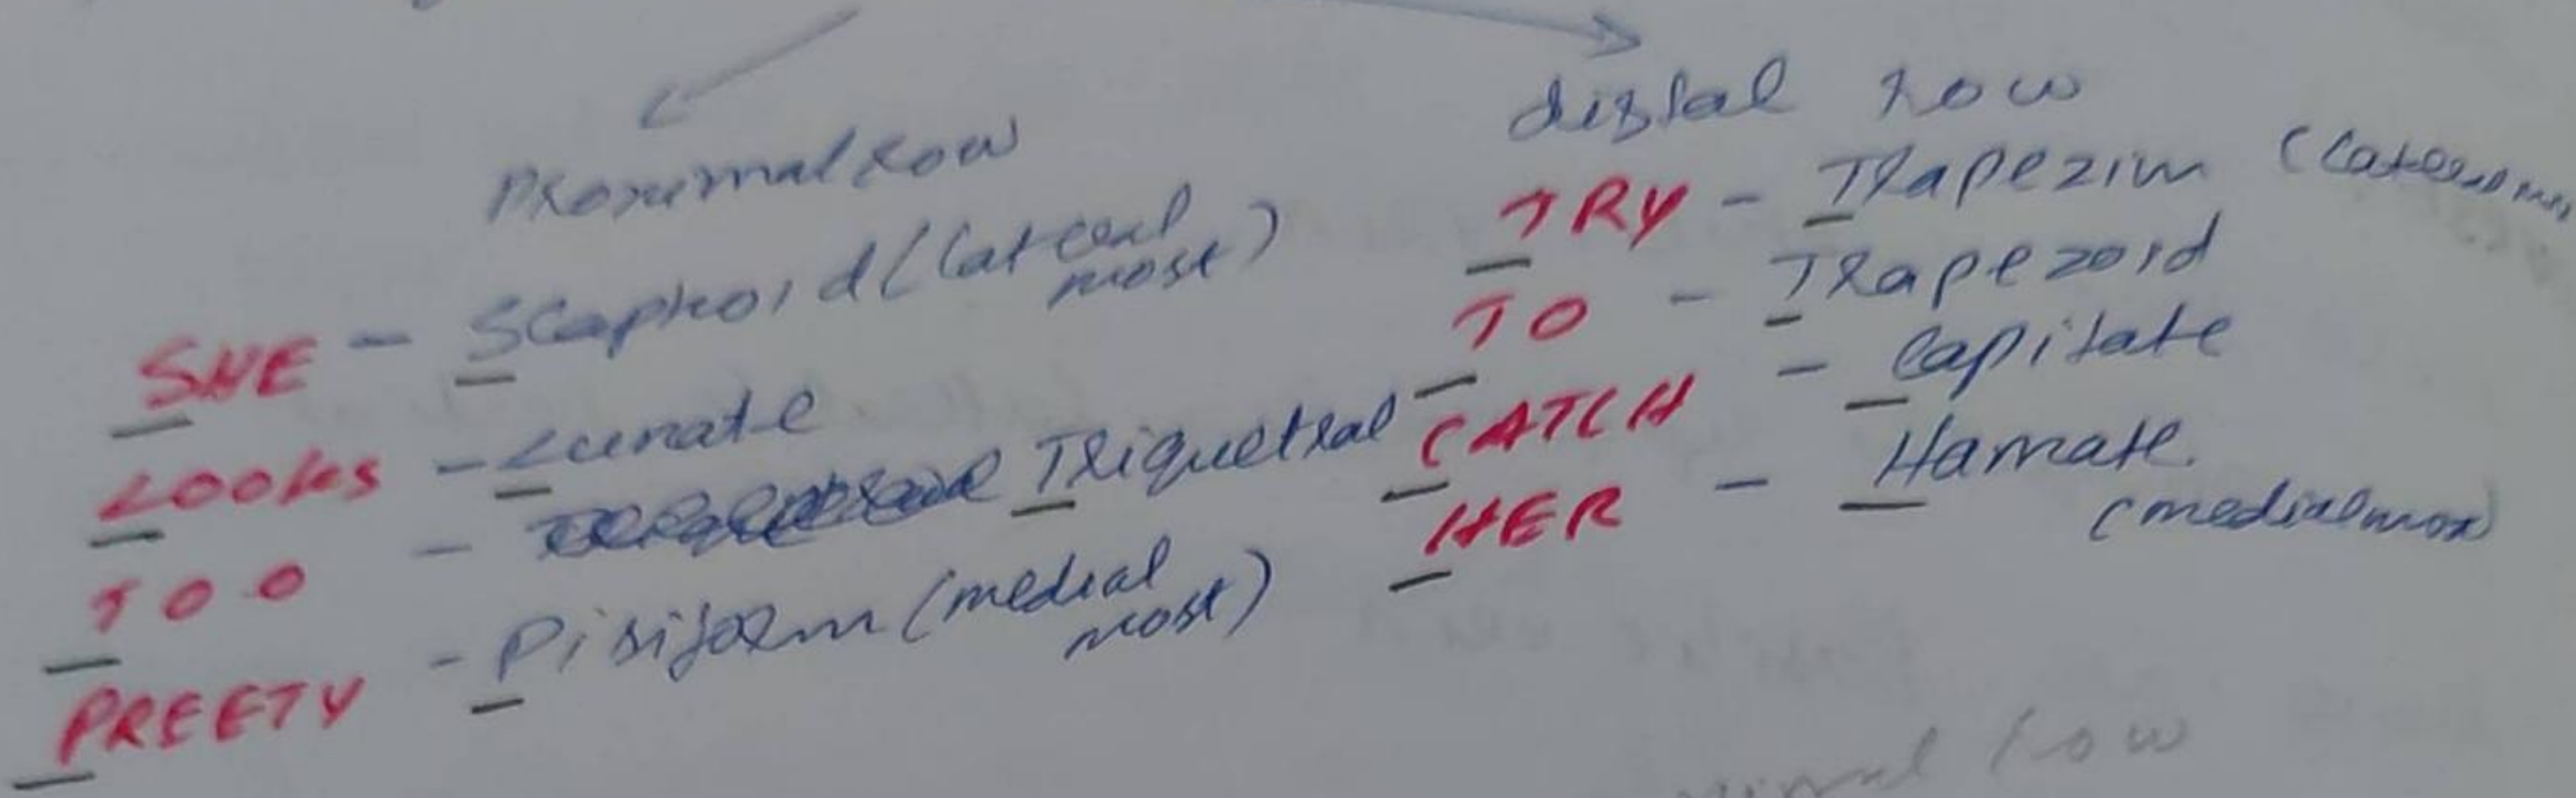 Proximal row
SHE - Scaphoid (lateral most)
Looks - Lunate
TOO - Triquetral
PREETY - Pisiform (medial most)
distal row
TRY - Trapezim
TO - Trapezoid
CATCH - Capitate
HER - Hamate.
(medialmost)
row